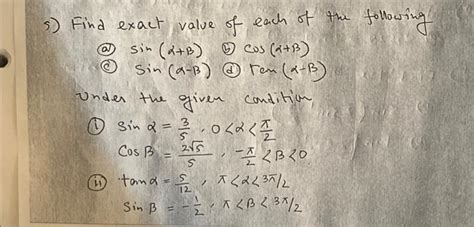 5) Find exact value of each of the following
(a) sin (α+β) (b) cos (α+β)
(c) sin (α-β) (d) tan (α-β)
Under the given condition
(i) sin α = 3/5, 0<α<π/2
cos β = 2√5/5, -π/2<β<0
(ii) tan α = 5/12, π<α<3π/2
sin β = -1/2, π<β<3π/2